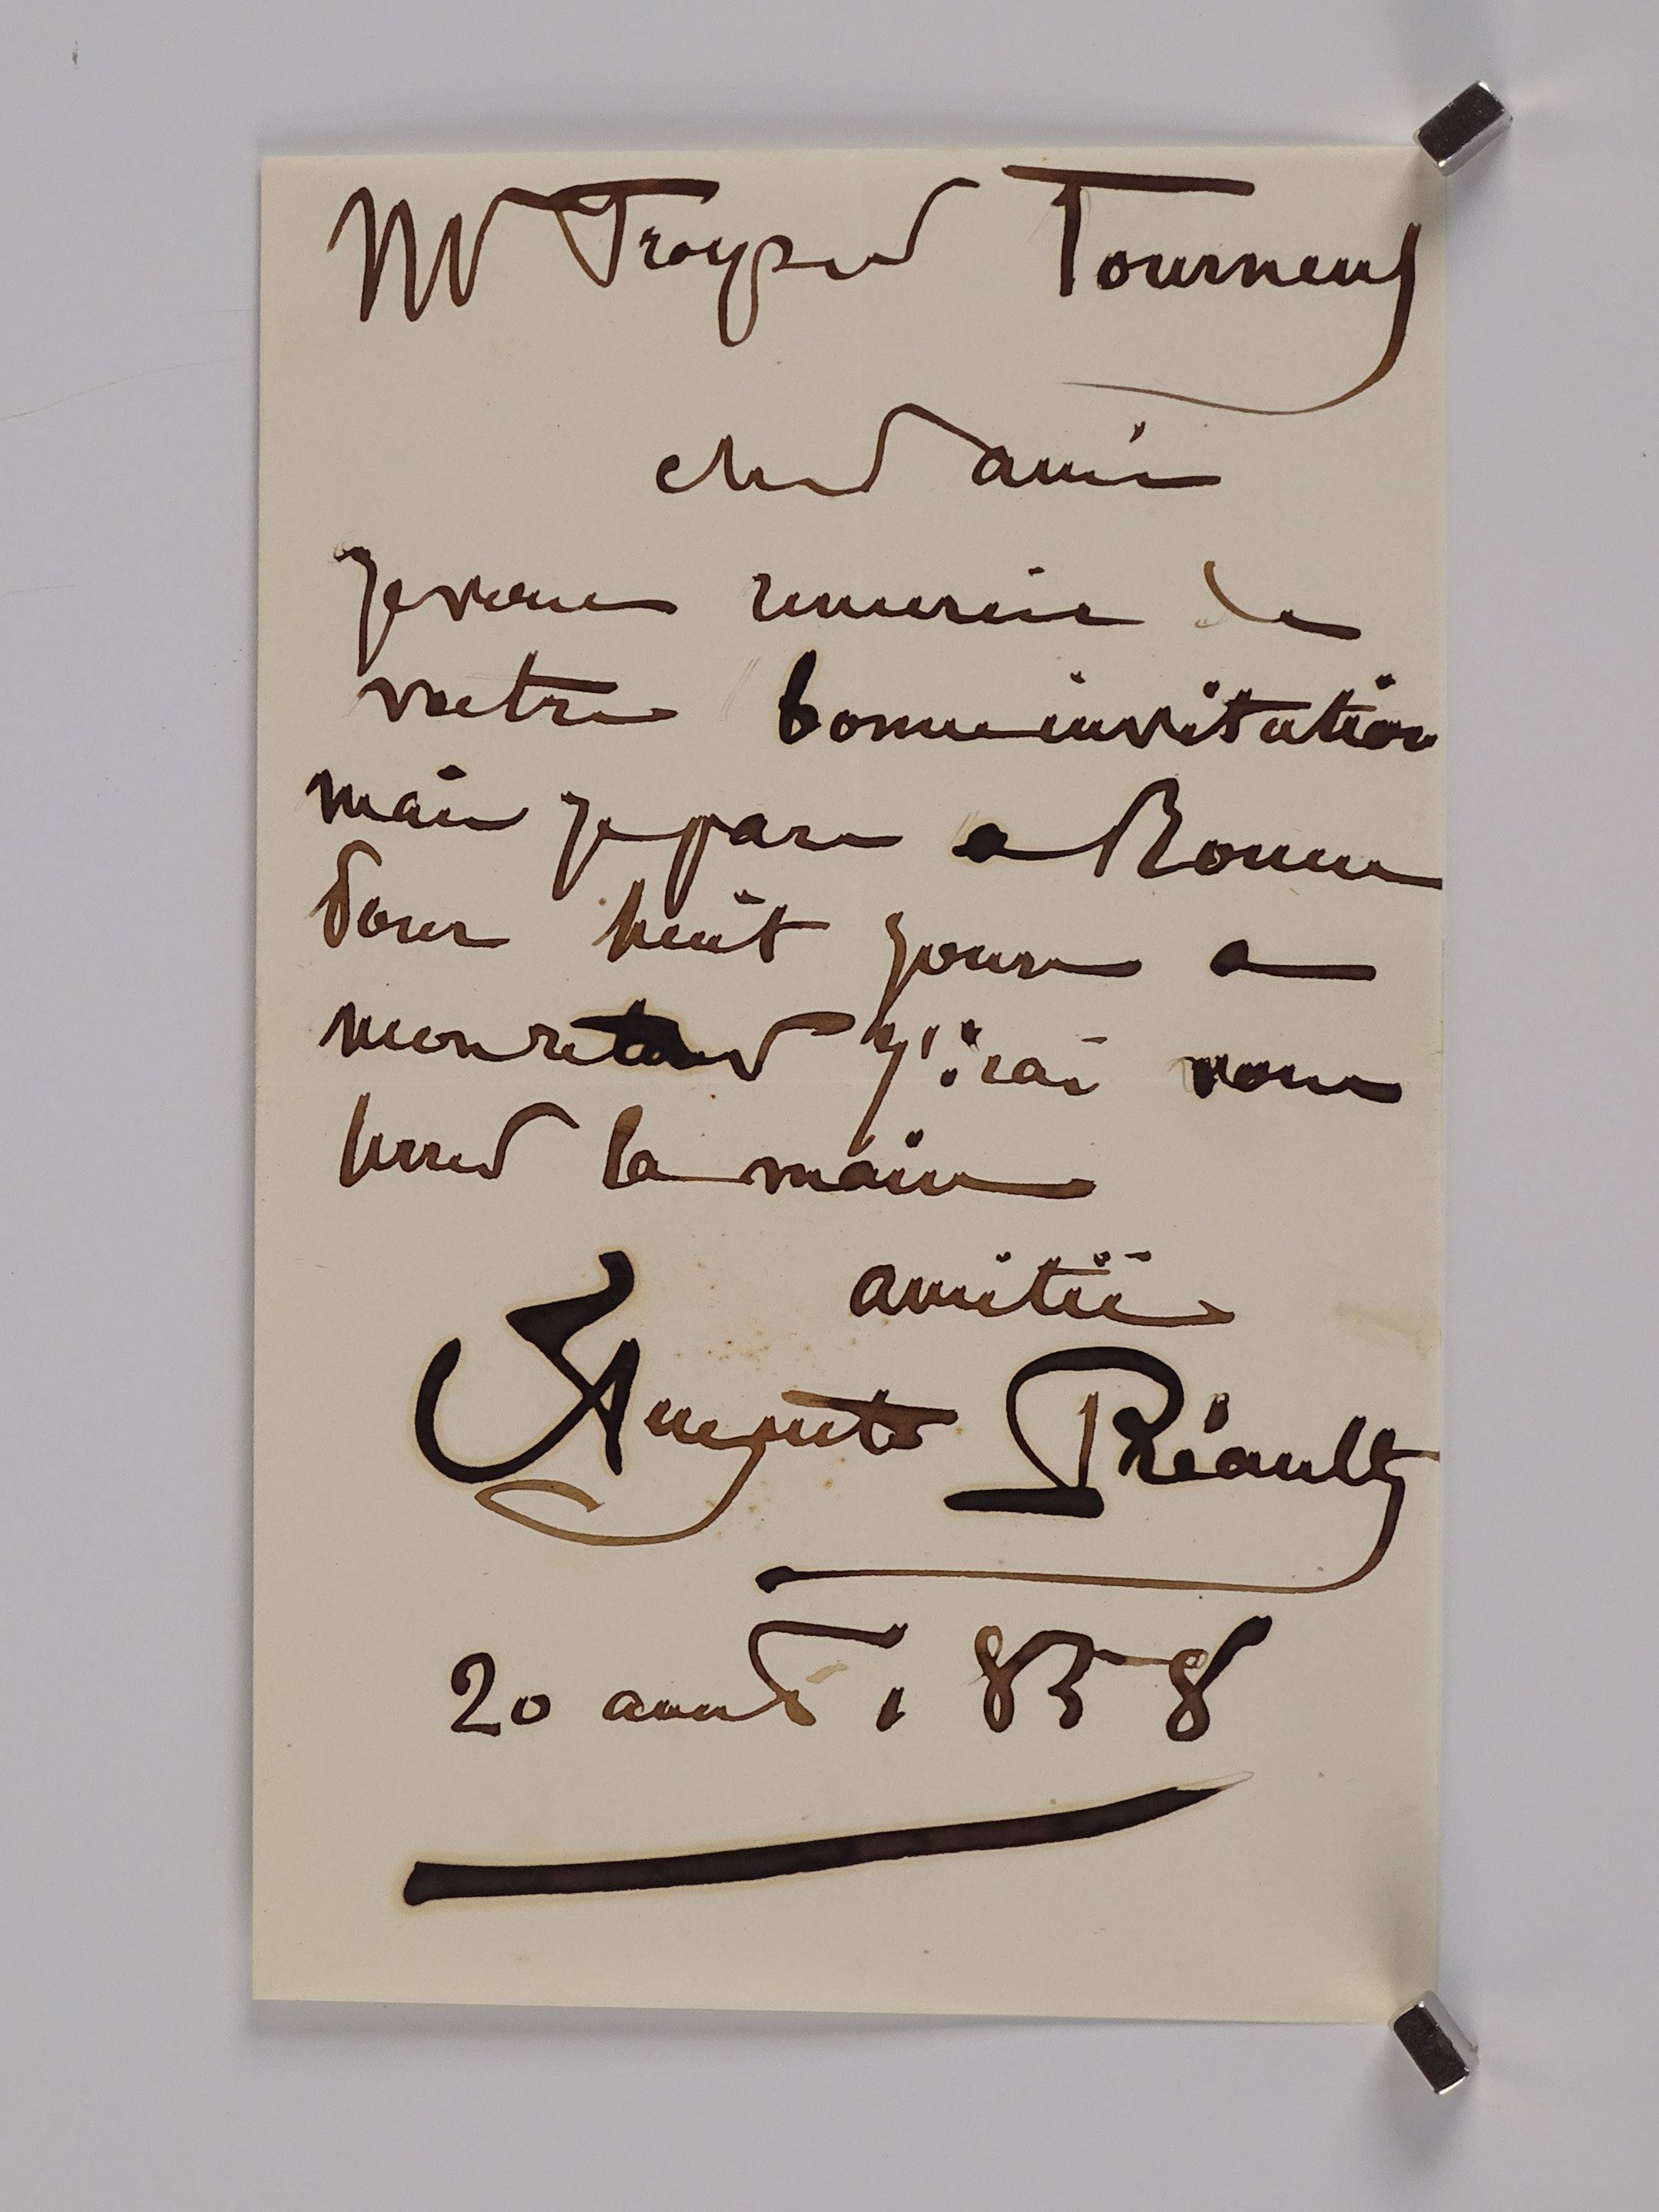 Mr Troyer Tourneux
cher ami
je vous remercie de
votre bonne invitation
mais je pars a Rouen
pour huit jours a
mon retour j'irai vous
serrer la main
amitié
Auguste Préault
20 aout 1858